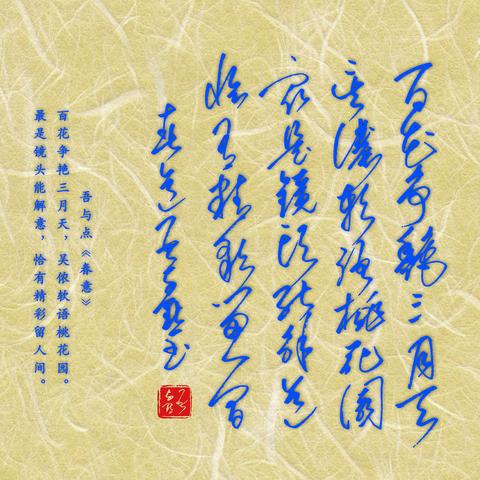 百花争艳三月天
吴侬软语桃花园
最是镜头能解意
恰有精彩留人间
春意
吾与点《春意》
百花争艳三月天，吴侬软语桃花园。
最是镜头能解意，恰有精彩留人间。